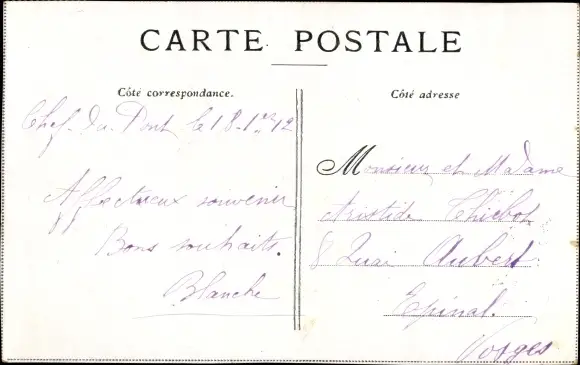 CARTE POSTALE
Côté correspondance.
Côté adresse
Chef-du-Pont le 18-1er 12
Affectueux souvenir
Bons souhaits.
Blanche
Monsieur et Madame
Aristide Thiebot
8 Quai Aubert.
Epinal.
Vosges